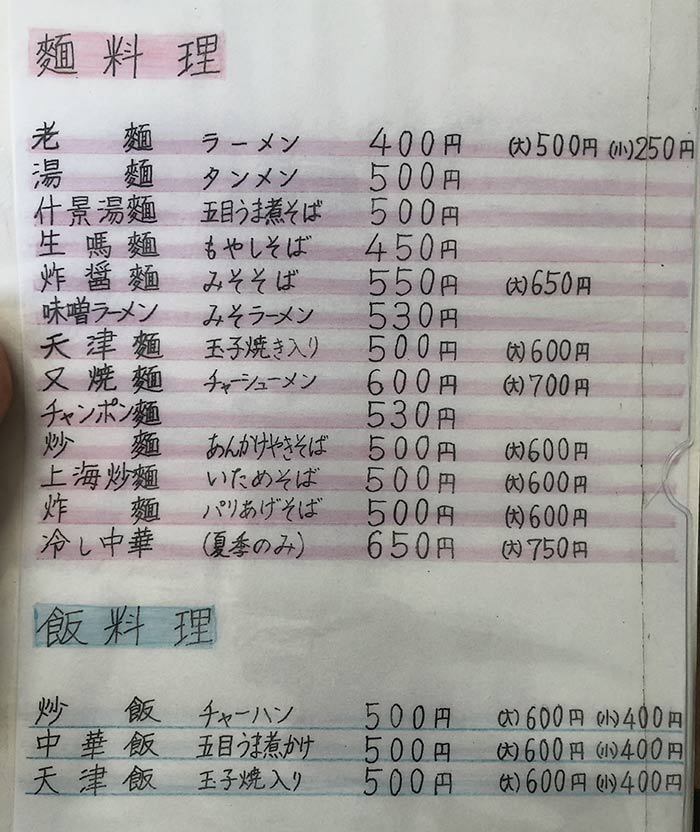 麵料理
老麵 ラーメン 400円 (大)500円 (小)250円
湯麵 タンメン 500円
什景湯麵 五目うま煮そば 500円
生嗎麵 もやしそば 450円
炸醤麵 みそそば 550円 (大)650円
味噌ラーメン みそラーメン 530円
天津麵 玉子焼き入り 500円 (大)600円
叉焼麵 チャーシューメン 600円 (大)700円
チャンポン麵 530円
炒麵 あんかけやきそば 500円 (大)600円
上海炒麵 いためそば 500円 (大)600円
炸麵 パリあげそば 500円 (大)600円
冷し中華 (夏季のみ) 650円 (大)750円
飯料理
炒飯 チャーハン 500円 (大)600円 (小)400円
中華飯 五目うま煮かけ 500円 (大)600円 (小)400円
天津飯 玉子焼入り 500円 (大)600円 (小)400円